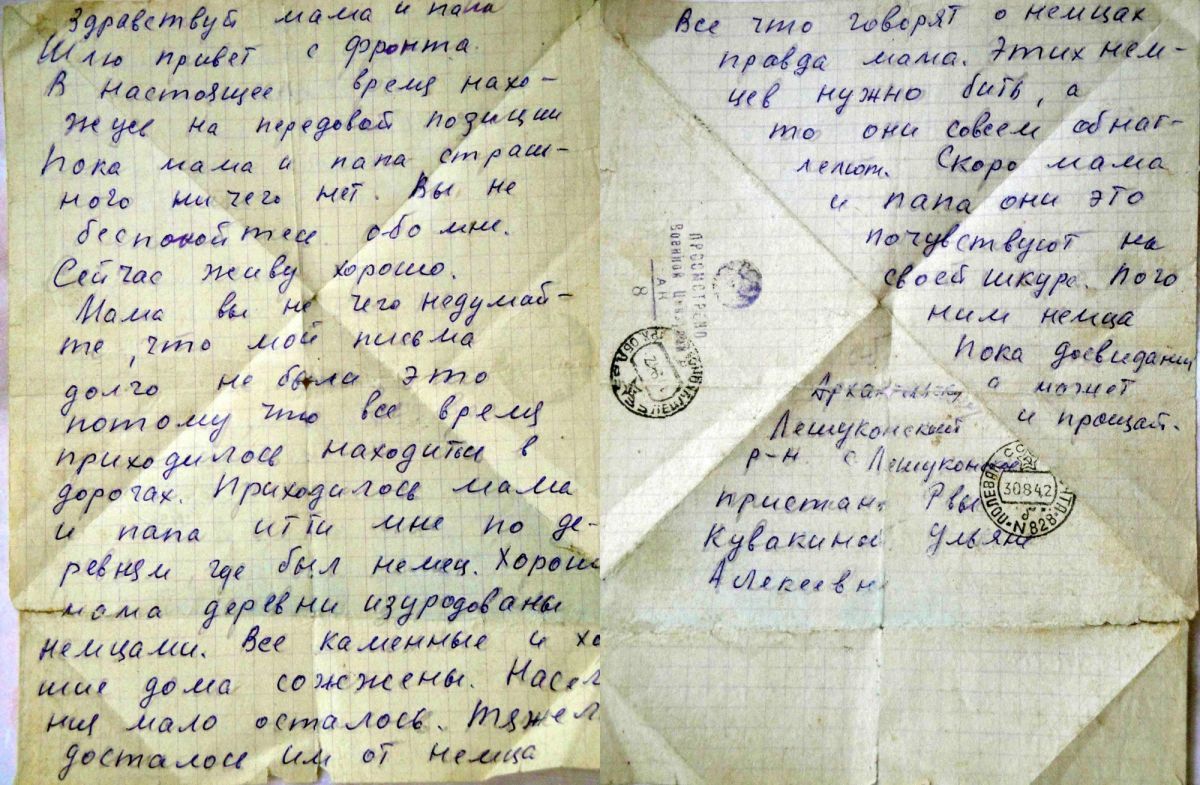 Здравствуй мама и папа
Шлю привет с фронта.
В настоящее время нахо-
жусь на передовой позиции
Пока мама и папа страш-
ного ни чего нет. Вы не
беспокойтесь обо мне.
Сейчас живу хорошо.
Мама вы не чего недумай-
те, что мой письма
долго не была, это
потому что все время
приходилось находиться в
дорогах. Приходилось мама
и папа итти мне по де-
ревням где был немец. Хорош
мама деревни изуродованы
немцами. Все каменные и хо
шие дома сожжены. Насел
ния мало осталось. Тяжел
досталось им от немца
Все что говорят о немцах
правда мама. Этих нем-
цев нужно бить, а
то они совсем обнаг-
леют. Скоро мама
и папа они это
почувствуют на
своей шкуре. Пого
ним немца
Пока досвидания
а может
и прощай.
ПРОСМОТРЕНО
Военной Цензурой
АН
8
Лешуконский
р-н. с Лешуконское
пристан. Рвы
Кувакиной Ульяне
Алекеевне
ПОЛЕВАЯ
30842
N 828